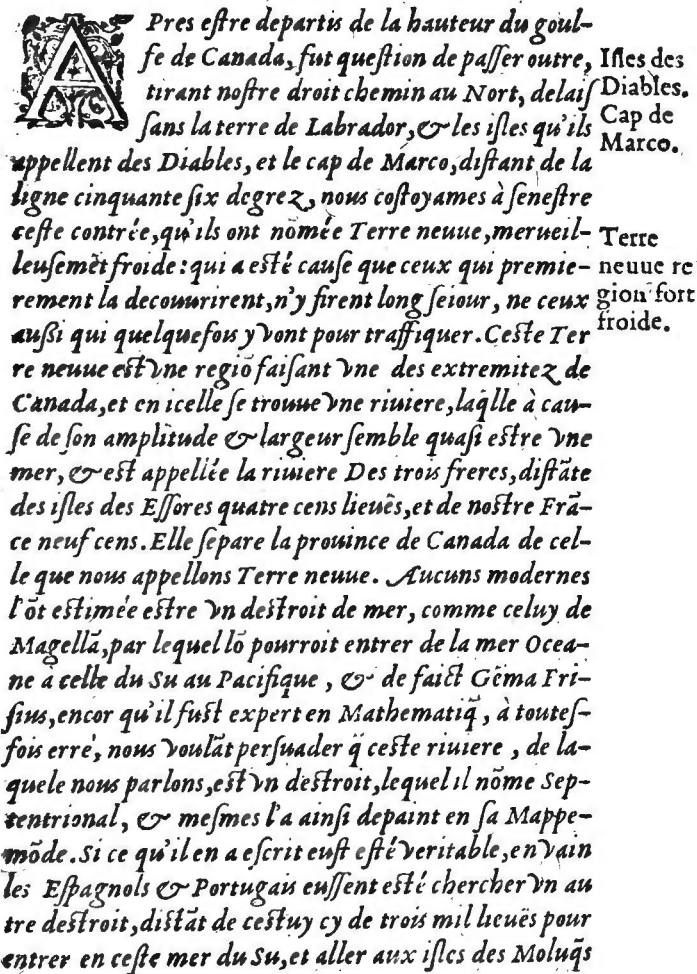 APres eſtre departis de la hauteur du goul-
fe de Canada, fut queſtion de paſſer outre,
tirant noſtre droit chemin au Nort, delaiſ
ſans la terre de Labrador, & les iſles qu'ils
appellent des Diables, et le cap de Marco, diſtant de la
ligne cinquante ſix degrez, nous coſtoyames à ſeneſtre
ceſte contrée, qu'ils ont nõmée Terre neuue, merueil-
leuſemẽt froide: qui a eſté cauſe que ceux qui premie-
rement la decouurirent, n'y firent long ſeiour, ne ceux
auſsi qui quelquefois y vont pour traffiquer. Ceſte Ter
re neuue eſt vne regiõ faiſant vne des extremitez de
Canada, et en icelle ſe trouue vne riuiere, laq̃lle à cau-
ſe de ſon amplitude & largeur ſemble quaſi eſtre vne
mer, & eſt appellée la riuiere Des trois freres, diſtãte
des iſles des Eſſores quatre cens lieuës, et de noſtre Frã-
ce neuf cens. Elle ſepare la prouince de Canada de cel-
le que nous appellons Terre neuue. Aucuns modernes
l'õt eſtimée eſtre vn deſtroit de mer, comme celuy de
Magellã, par lequel lõ pourroit entrer de la mer Ocea-
ne à celle du Su au Pacifique, & de faict Gẽma Fri-
ſius, encor qu'il fuſt expert en Mathematiq̃, à touteſ-
fois erré, nous voulãt perſuader q̃ ceſte riuiere, de la-
quele nous parlons, eſt vn deſtroit, lequel il nõme Sep-
tentrional, & meſmes l'a ainſi depaint en ſa Mappe-
mõde. Si ce qu'il en a eſcrit euſt eſté veritable, en vain
les Eſpagnols & Portugais euſſent eſté chercher vn au
tre deſtroit, diſtãt de ceſtuy cy de trois mil lieuës pour
entrer en ceſte mer du Su, et aller aux iſles des Moluq̃s
Iſles des
Diables.
Cap de
Marco.
Terre
neuue re
gion fort
froide.